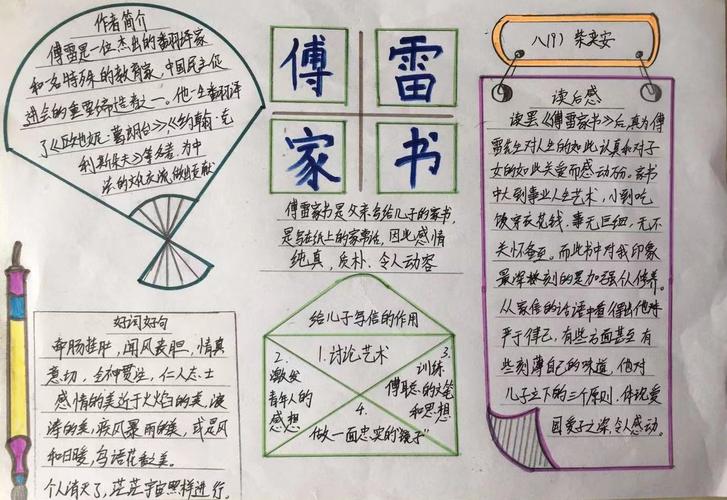 作者简介
傅雷是一位杰出的翻译家
和一名特殊的教育家,中国民主促
进会的重要缔造者之一。他一生翻译
了《欧也妮·葛朗台》《约翰·克
利斯朵夫》等名著,为中
法的文化交流做出贡献
傅雷
家书
傅雷家书是父亲写给儿子的家书,
是写在纸上的家常话,因此感情
纯真,质朴,令人动容
好词好句
牵肠挂肚,闻风丧胆,情真
意切,全神贯注,仁人志士
感情的美近于火焰的美,浪
涛的美,疾风暴雨的美,或是风
和日暖,鸟语花香之美。
个人消灭了,茫茫宇宙照样进行。
给儿子写信的作用
1.讨论艺术
2.
激发
青年人的
感想
3.
训练
傅聪的文笔
和思想
4.
做一面忠实的"镜子"
八(9) 柴奕安
读后感
读罢《傅雷家书》后,真为傅
雷先生对人生的如此认真和对子
女的如此关爱而感动万分。家书
中大到事业人生艺术,小到吃
饭穿衣花钱,事无巨细,无不
关怀备至。而此书中对我印象
最深极刻的是加强个人修养。
从家信的话语中看得出他
严于律己,有些方面甚至有
些刻薄自己的味道,他对
儿子立下的三个原则,体现爱
国爱子之深,令人感动。